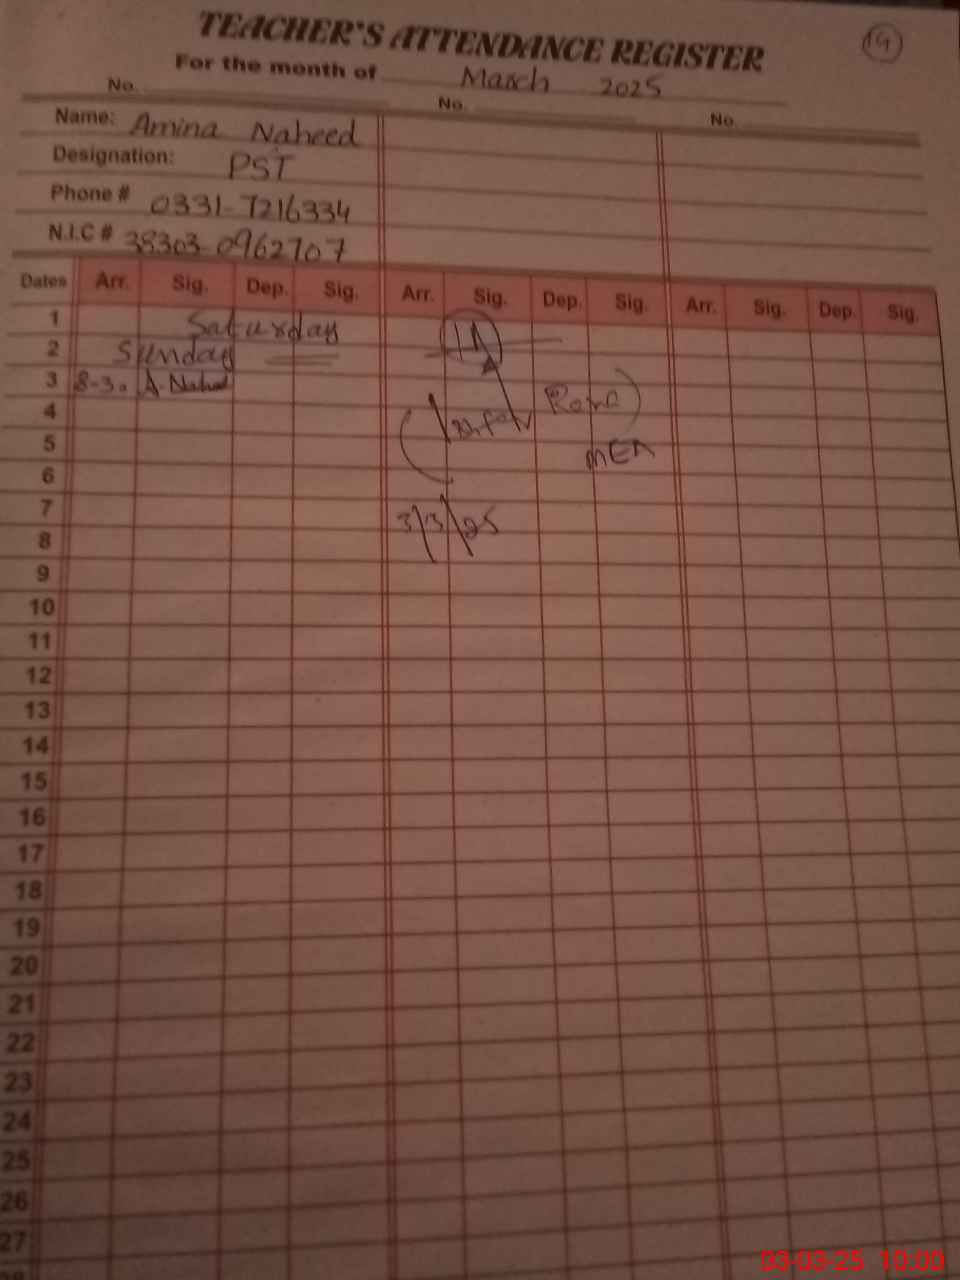 TEACHER'S ATTENDANCE REGISTER
14
For the month of March 2025
No. No. No.
Name: Amina Naheed
Designation: PST
Phone # 0331-7216334
N.I.C # 38303-0962707
Dates Arr. Sig. Dep. Sig. Arr. Sig. Dep. Sig. Arr. Sig. Dep. Sig.
1 Saturday
2 Sunday
3 8-30 A. Naheed
4
5 MEA
6
7 3/3/25
8
9
10
11
12
13
14
15
16
17
18
19
20
21
22
23
24
25
26
27
03-03-25 10:00